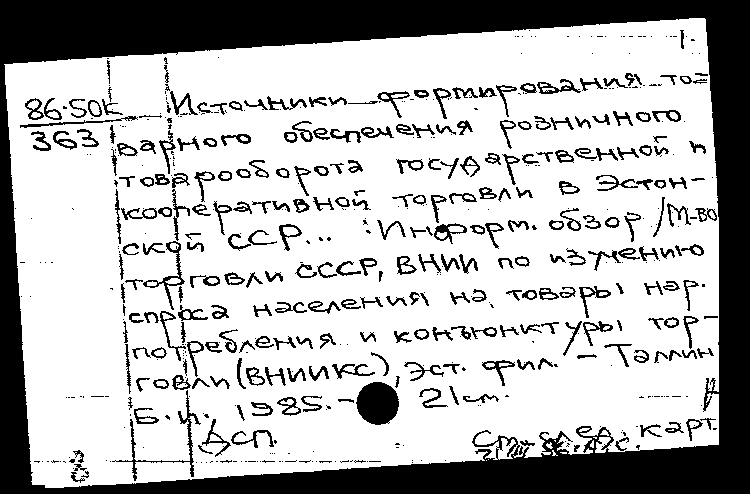 1.
86-50к
363
Источники формирования то=
варного обеспечения розничного
товарооборота государственной и
кооперативной торговли в Эстон-
ской ССР... : Информ. обзор / М-во
торговли СССР, ВНИИ по изучению
спроса населения на товары нар.
потребления и конъюнктуры тор-
говли (ВНИИКС), Эст. фил. - Таллин
Б.и., 1985. - 21 см.
Дсп.
См. след. карт.
8